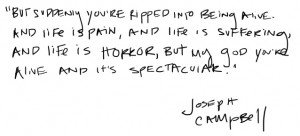 "BUT SUDDENLY YOU'RE RIPPED INTO BEING ALIVE.
AND LIFE IS PAIN, AND LIFE IS SUFFERING,
AND LIFE IS HORROR, BUT MY GOD YOU'RE
ALIVE AND IT'S SPECTACULAR."
JOSEPH
CAMPBELL